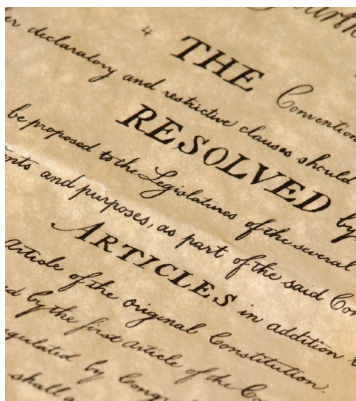 4
THE Convention
er declaratory and restrictive clauses should
RESOLVED by
be proposed to the Legislatures of the several
nts and purposes, as part of the said Con
ARTICLES in addition
Article of the original Constitution.
ed by the first article of the Co
egulated by Cong
shall